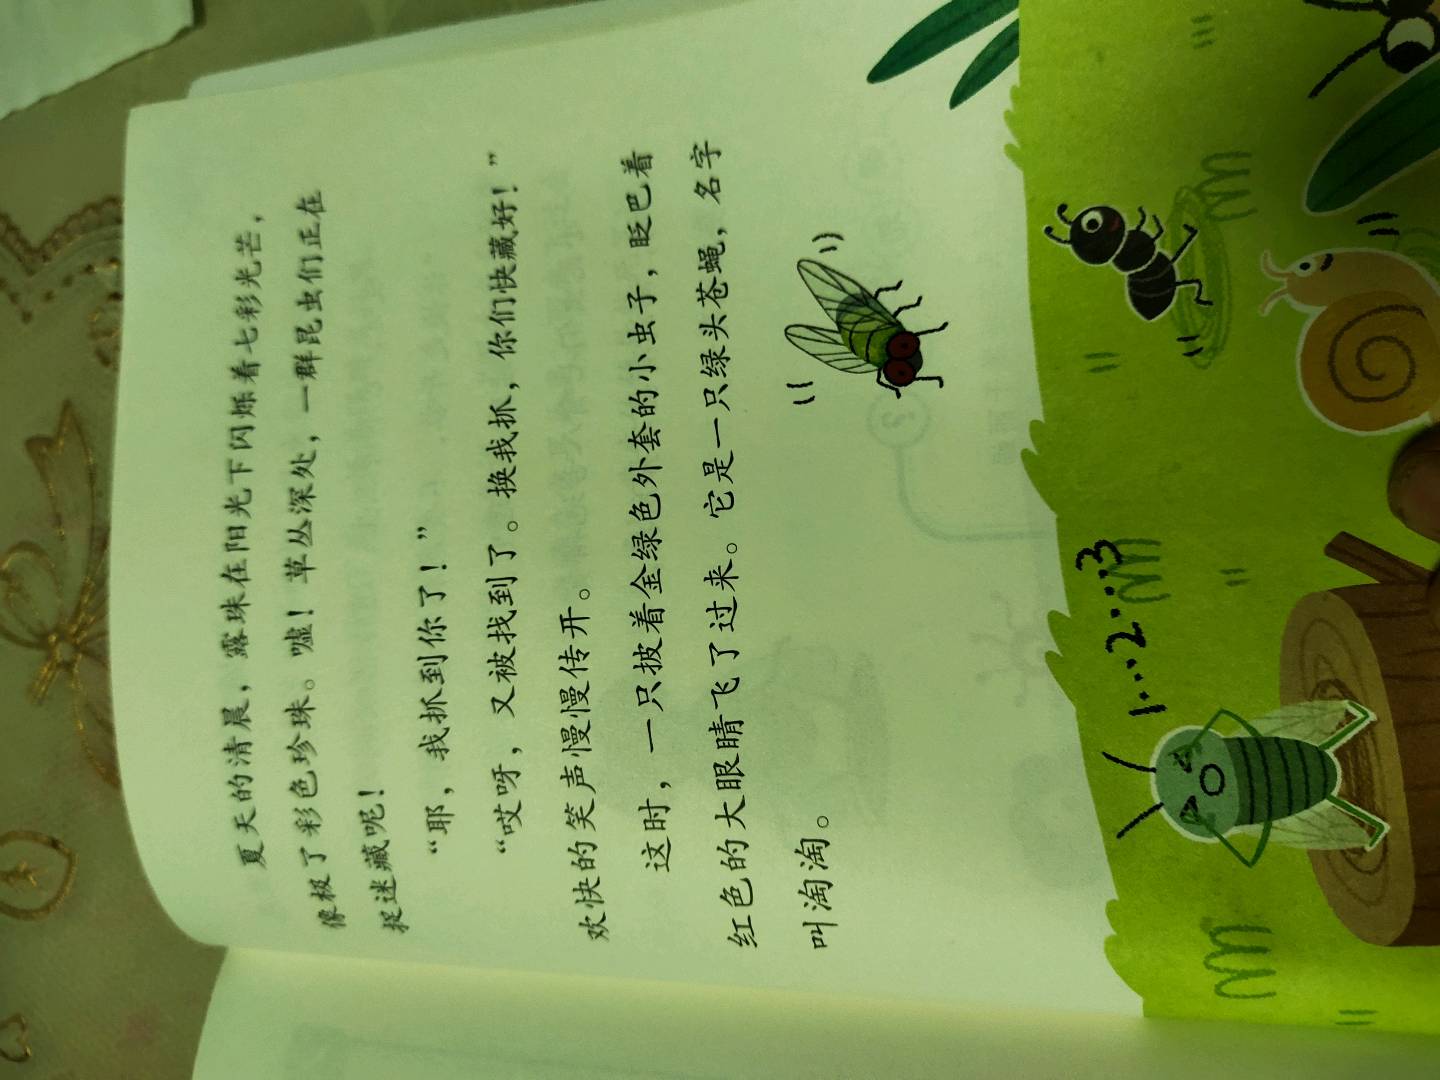 夏天的清晨，露珠在阳光下闪烁着七彩光芒，
像极了彩色珍珠。嘘！草丛深处，一群昆虫们正在
捉迷藏呢！
“耶，我抓到你了！”
“哎呀，又被找到了。换我抓，你们快藏好！”
欢快的笑声慢慢传开。
这时，一只披着金绿色外套的小虫子，眨巴着
红色的大眼睛飞了过来。它是一只绿头苍蝇，名字
叫淘淘。
1...2...3